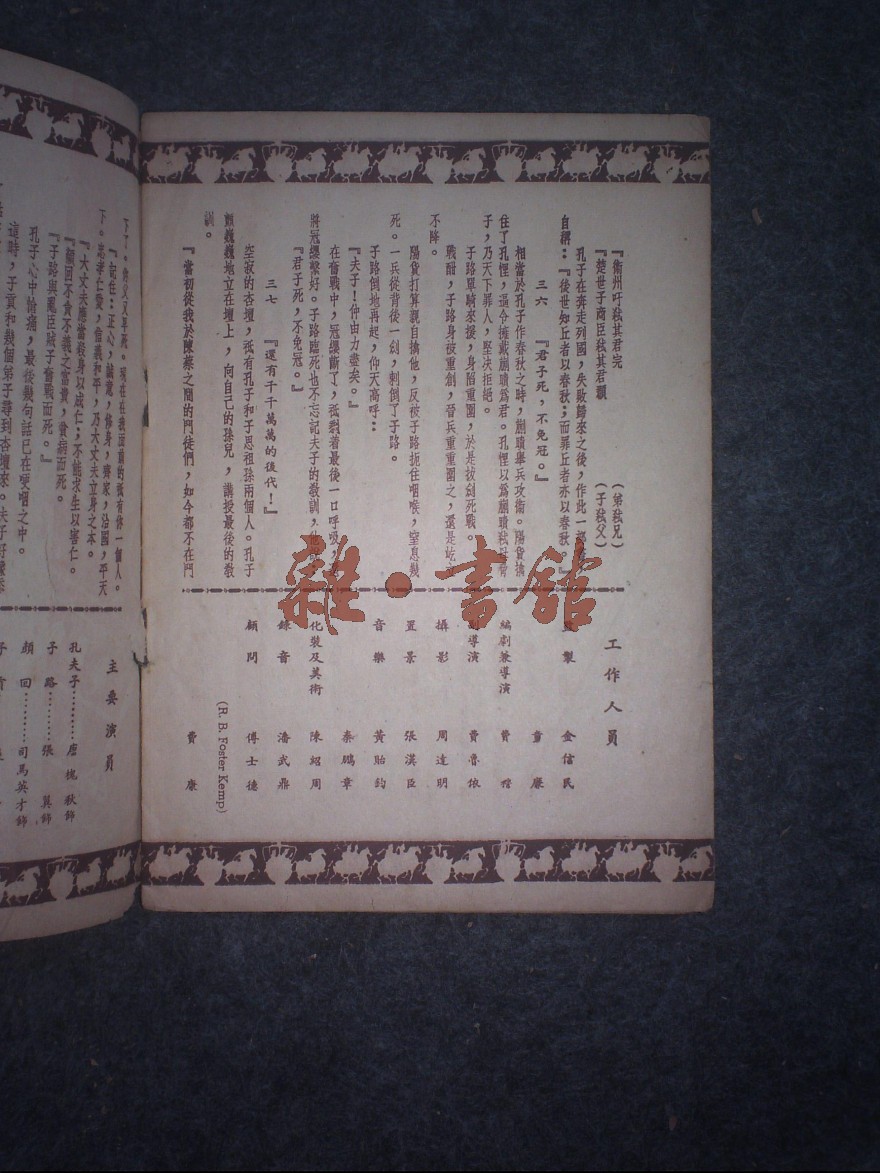 『衞州吁弑其君完（弟弑兄）
『楚世子商臣弑其君頵（子弑父）
孔子在奔走列國，失敗歸來之後，作此一部
自稱：『後世知丘者以春秋；而罪丘者亦以春秋。』
三六 『君子死，不免冠。』
相當於孔子作春秋之時，蒯聵舉兵攻衞。陽貨擒
住了孔悝，逼令擁戴蒯聵爲君。孔悝以爲蒯聵弑
子，乃天下罪人，堅決拒絕。
子路單騎來援，身陷重圍，於是拔劍死戰。
戰酣，子路身被重創，晉兵重重圍之，還是屹立
不降。
陽貨打算親自擒他，反被子路扼住咽喉，窒息幾
死。一兵從背後一劍，刺倒了子路。
子路倒地再起，仰天高呼：
『夫子！仲由力盡矣。』
在奮戰中，冠纓斷了，祗剩着最後一口呼吸，
將冠纓繫好。子路臨死也不忘記夫子的敎訓，他說：
『君子死，不免冠。』
三七 『還有千千萬萬的後代！』
空寂的杏壇，祗有孔子和子思祖孫兩個人。孔子
顫巍巍地立在壇上，向自己的孫兒，講授最後的敎
訓。
『當初從我於陳蔡之間的門徒們，如今都不在門
工作人員
監製 金信民
童廉
編劇兼導演 費穆
副導演 費魯依
攝影 周達明
置景 張漢臣
音樂 黃貽鈞
秦鵬章
化裝及美術 陳紹周
錄音 潘武鼎
顧問 傅士德
(R. B. Foster Kemp)
費康
下了。你父又早死。現在在我面前的祗有你一個人。
『記住：正心，誠意，修身，齊家，治國，平天
下。忠孝仁愛，信義和平，乃大丈夫立身之本。
『大丈夫應當殺身以成仁；不能求生以害仁。
『顏回不貪不義之富貴，貧病而死。
『子路與亂臣賊子奮戰而死。』
孔子心中愴痛，最後幾句話已在哽咽之中。
這時，子貢和幾個弟子尋到杏壇來。夫子好像
主要演員
孔夫子………唐槐秋飾
子路………張翼飾
顏回………司馬英才飾
雜·書館